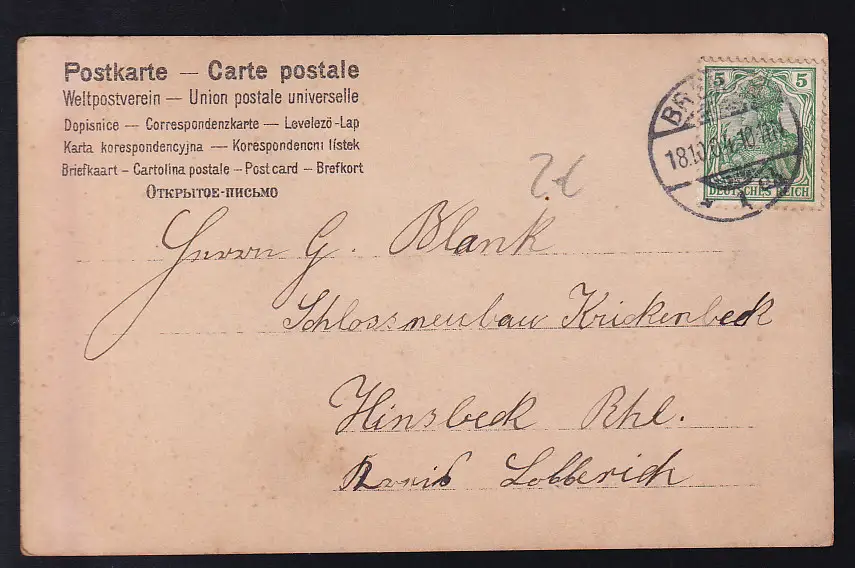 Postkarte — Carte postale
Weltpostverein — Union postale universelle
Dopisnice — Correspondenzkarte — Levelező-Lap
Karta korespondencyjna — Korespondencni lístek
Briefkaart – Cartolina postale – Post card – Brefkort
Открытое-письмо
5 5
DEUTSCHES REICH
18.10.04.10-11N
Herrn G. Blank
Schlossneubau Krickenbeck
Hinsbeck Rhl.
Lobberich